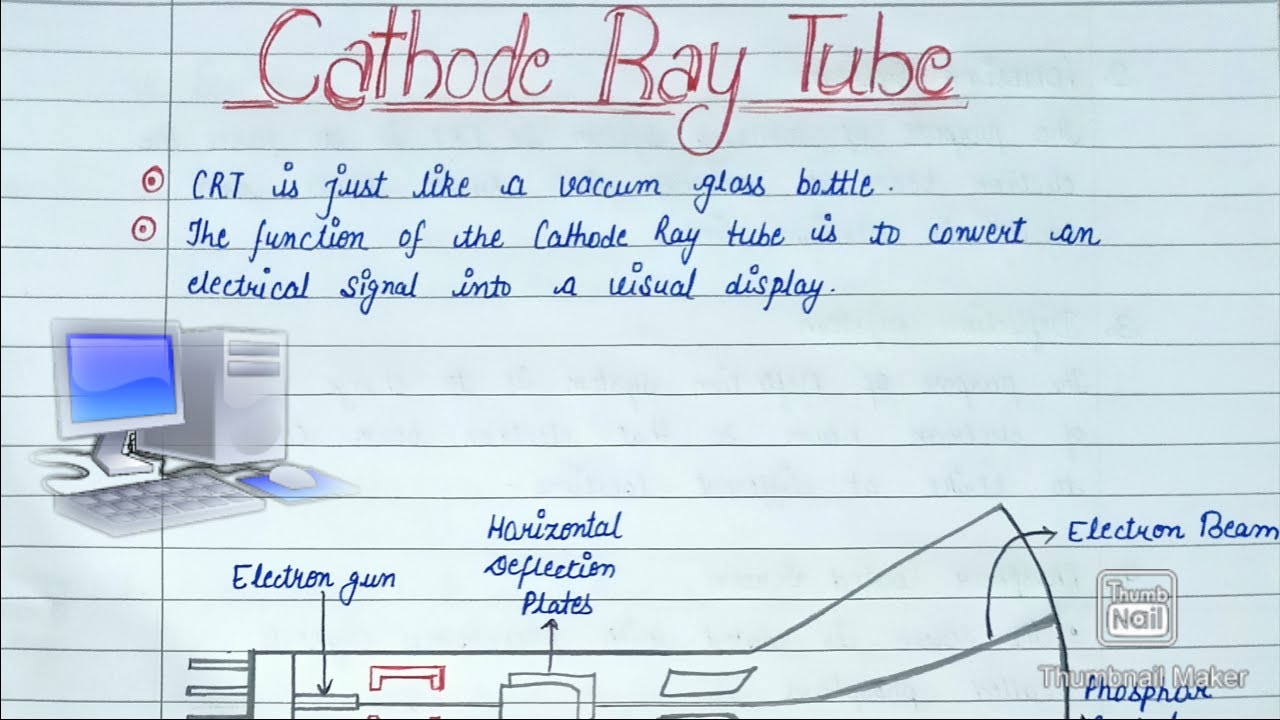 Cathode Ray Tube
CRT is just like a vaccum glass bottle.
The function of the Cathode Ray tube is to convert an
electrical signal into a visual display.
Harizontal
Deflection
Plates
Electron Beam
Electron gun
Thumb
Nail
Thumbnail Maker
Phosphor